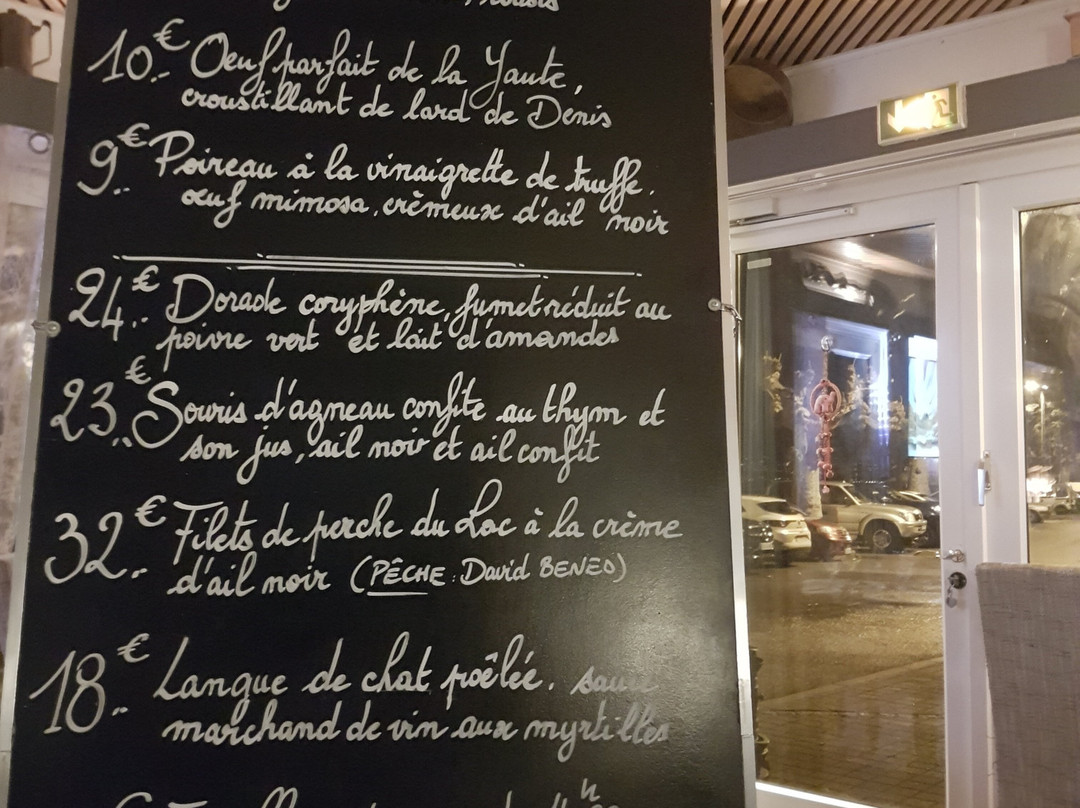 10€.. Oeuf parfait de la Yaute,
croustillant de lard de Denis
9€.. Poireau à la vinaigrette de truffe.
œuf mimosa, crèmeux d'ail noir
24€.. Dorade coryphène, fumet réduit au
poivre vert et lait d'amandes
23€.. Souris d'agneau confite au thym et
son jus, ail noir et ail confit
32€.. Filets de perche du Lac à la crème
d'ail noir (PÊCHE : David BENED)
18€.. Langue de chat poêlée. sauce
marchand de vin aux myrtilles